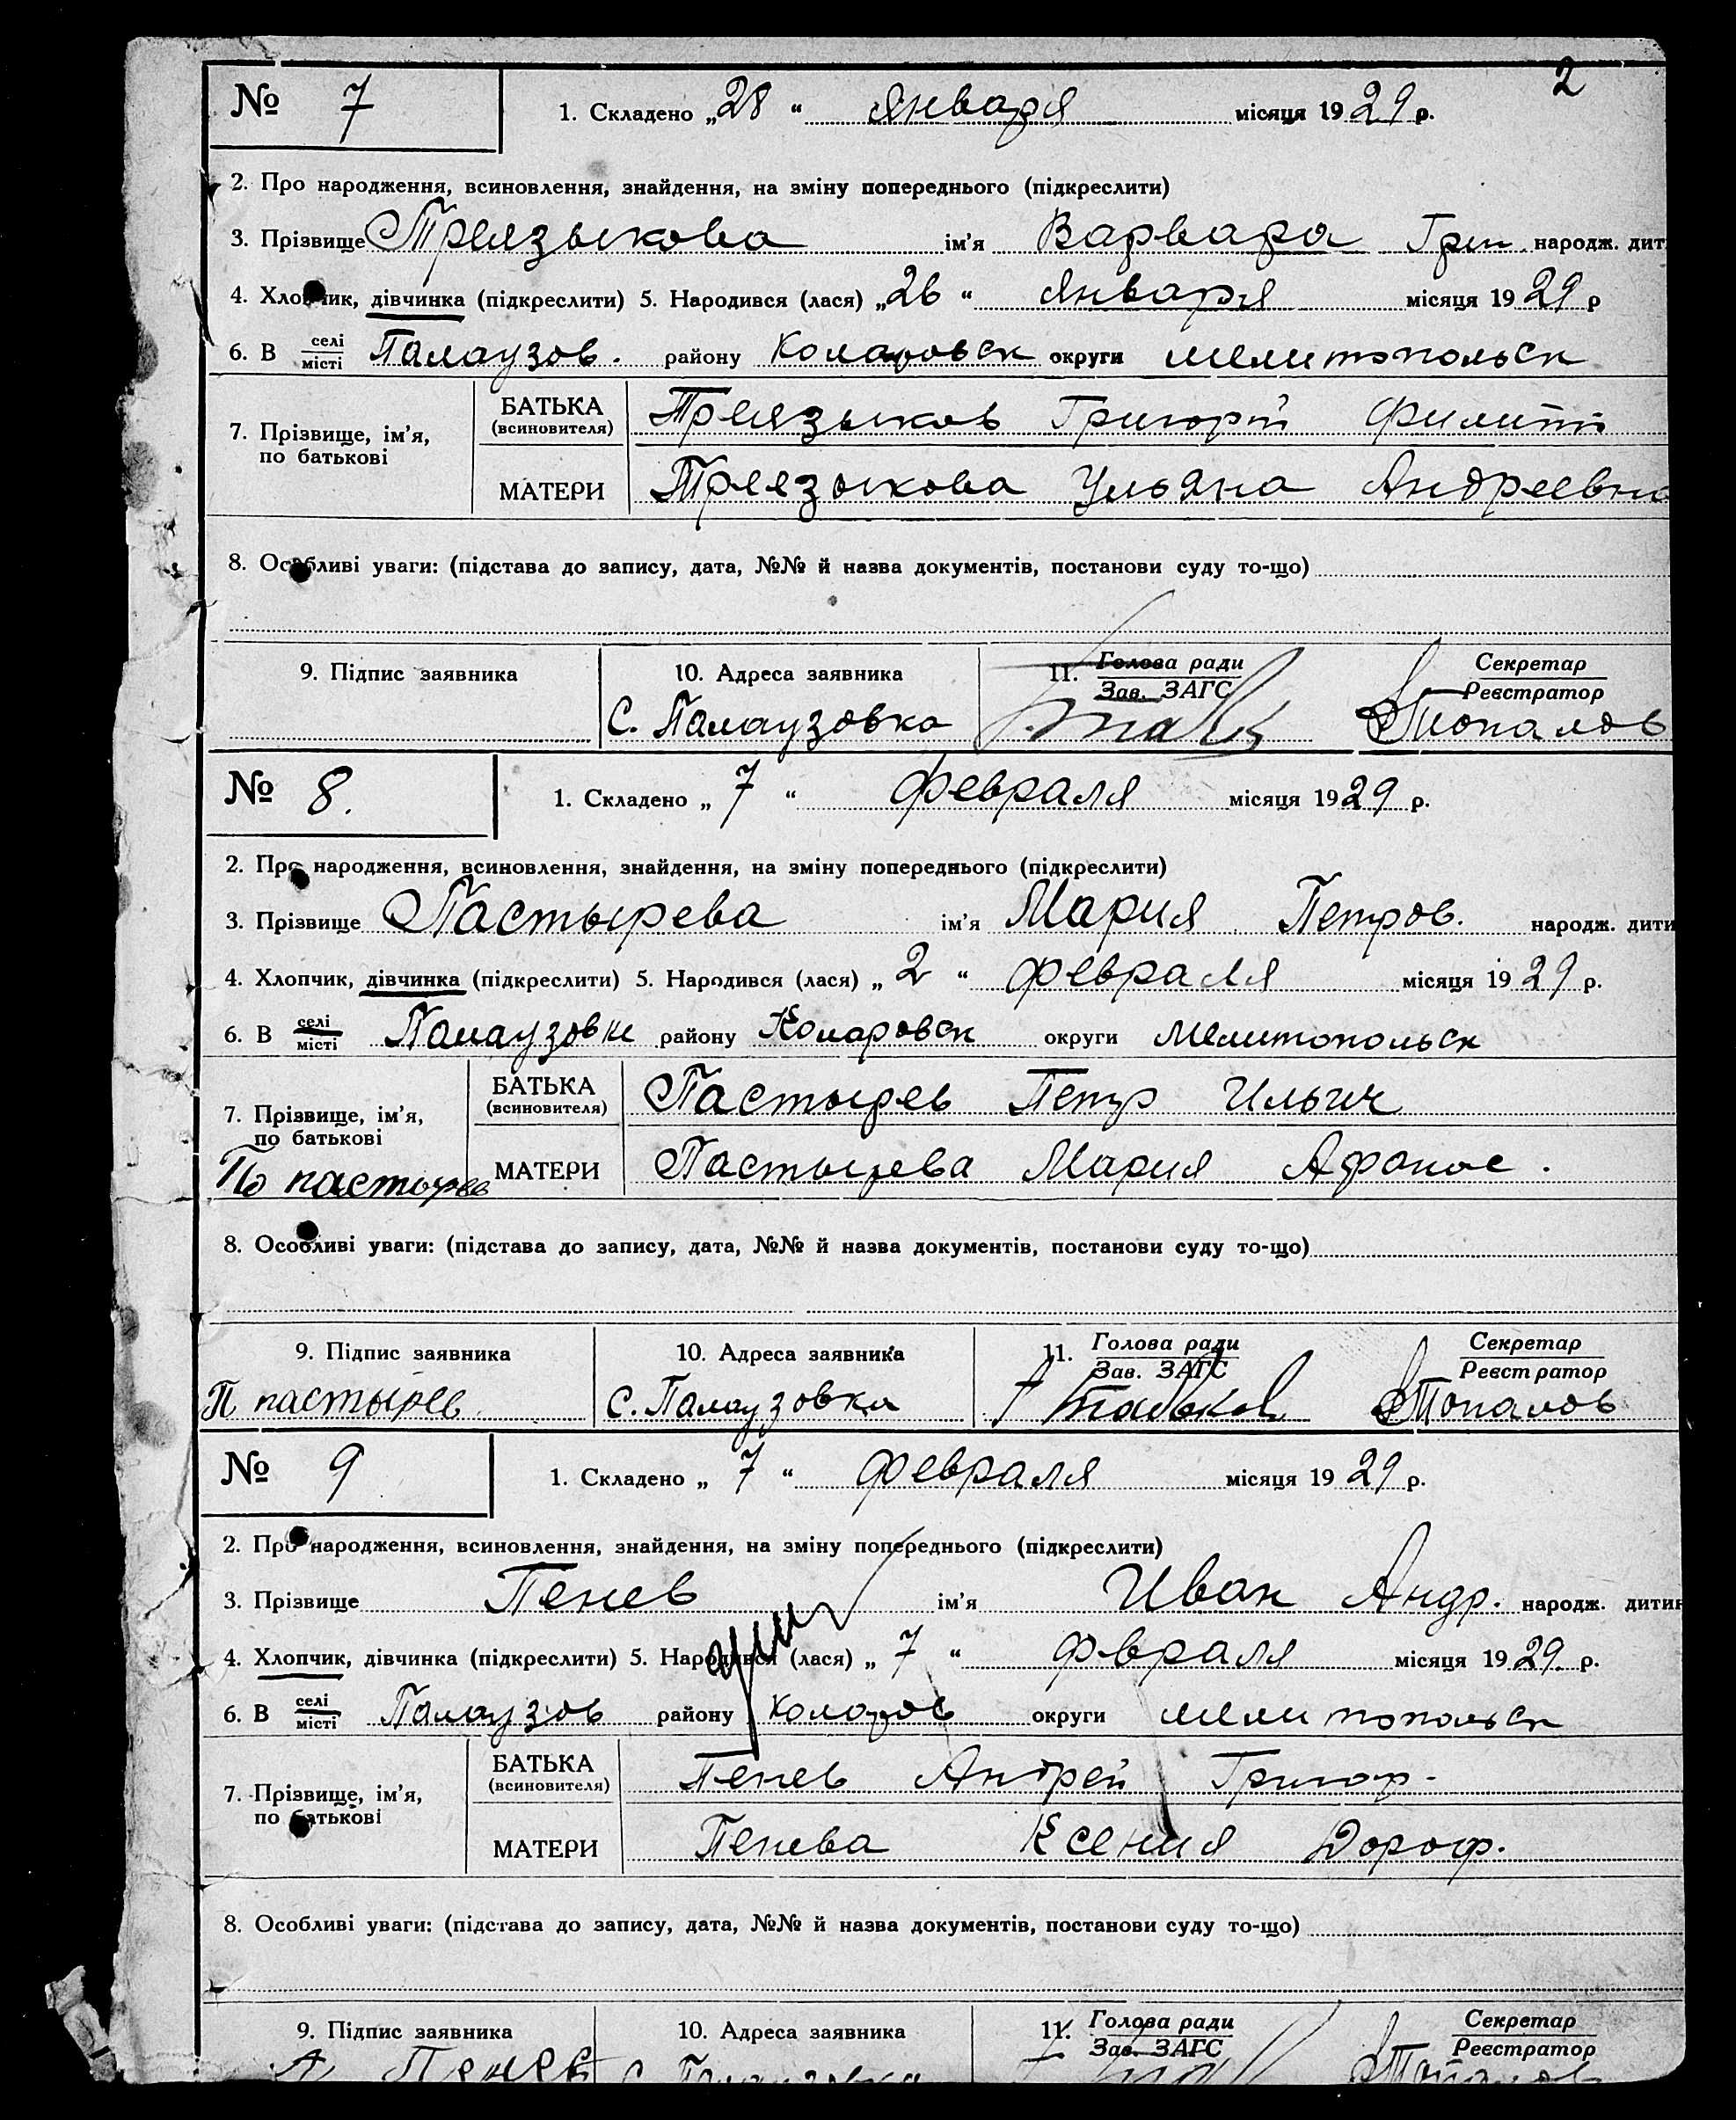 2
№ 7 1. Складено „28“ января місяця 1929 р.
2. Про народження, всиновлення, знайдення, на зміну попереднього (підкреслити)
3. Прізвище Треязыкова ім'я Варвара Григ. народж. дит
4. Хлопчик, дівчинка (підкреслити) 5. Народився (лася) „26“ января місяця 1929 р
6. В селі місті Палаузов. району Коларовск округи мелитопольск
7. Прізвище, ім'я, по батькові
БАТЬКА (всиновителя) Треязыков Григорий Филипп
МАТЕРИ Треязыкова Ульяна Андреевна
8. Особливі уваги: (підстава до запису, дата, №№ й назва документів, постанови суду то-що)
9. Підпис заявника 10. Адреса заявника 11. Голова ради Зав. ЗАГС Секретар Реєстратор
С. Палаузовка Топалов
№ 8. 1. Складено „7“ февраля місяця 1929 р.
2. Про народження, всиновлення, знайдення, на зміну попереднього (підкреслити)
3. Прізвище Пастырева ім'я Мария Петров. народж. дити
4. Хлопчик, дівчинка (підкреслити) 5. Народився (лася) „2“ февраля місяця 1929 р.
6. В селі місті Палаузовке району Коларовск округи мелитопольск
7. Прізвище, ім'я, по батькові
БАТЬКА (всиновителя) Пастырев Петр Ильич
МАТЕРИ Пастырева Мария Афанас.
8. Особливі уваги: (підстава до запису, дата, №№ й назва документів, постанови суду то-що)
9. Підпис заявника 10. Адреса заявника 11. Голова ради Зав. ЗАГС Секретар Реєстратор
П пастырев С. Палаузовка Топалов
№ 9 1. Складено „7“ февраля місяця 1929 р.
2. Про народження, всиновлення, знайдення, на зміну попереднього (підкреслити)
3. Прізвище Пенев ім'я Иван Андр. народж. дитин
4. Хлопчик, дівчинка (підкреслити) 5. Народився (лася) „7“ февраля місяця 1929 р.
6. В селі місті Палаузов району Коларов округи мелитопольск
7. Прізвище, ім'я, по батькові
БАТЬКА (всиновителя) Пенев Андрей Григор.
МАТЕРИ Пенева Ксения Дороф.
8. Особливі уваги: (підстава до запису, дата, №№ й назва документів, постанови суду то-що)
9. Підпис заявника 10. Адреса заявника 11. Голова ради Зав. ЗАГС Секретар Реєстратор
А Пенев С. Палаузовка Топалов